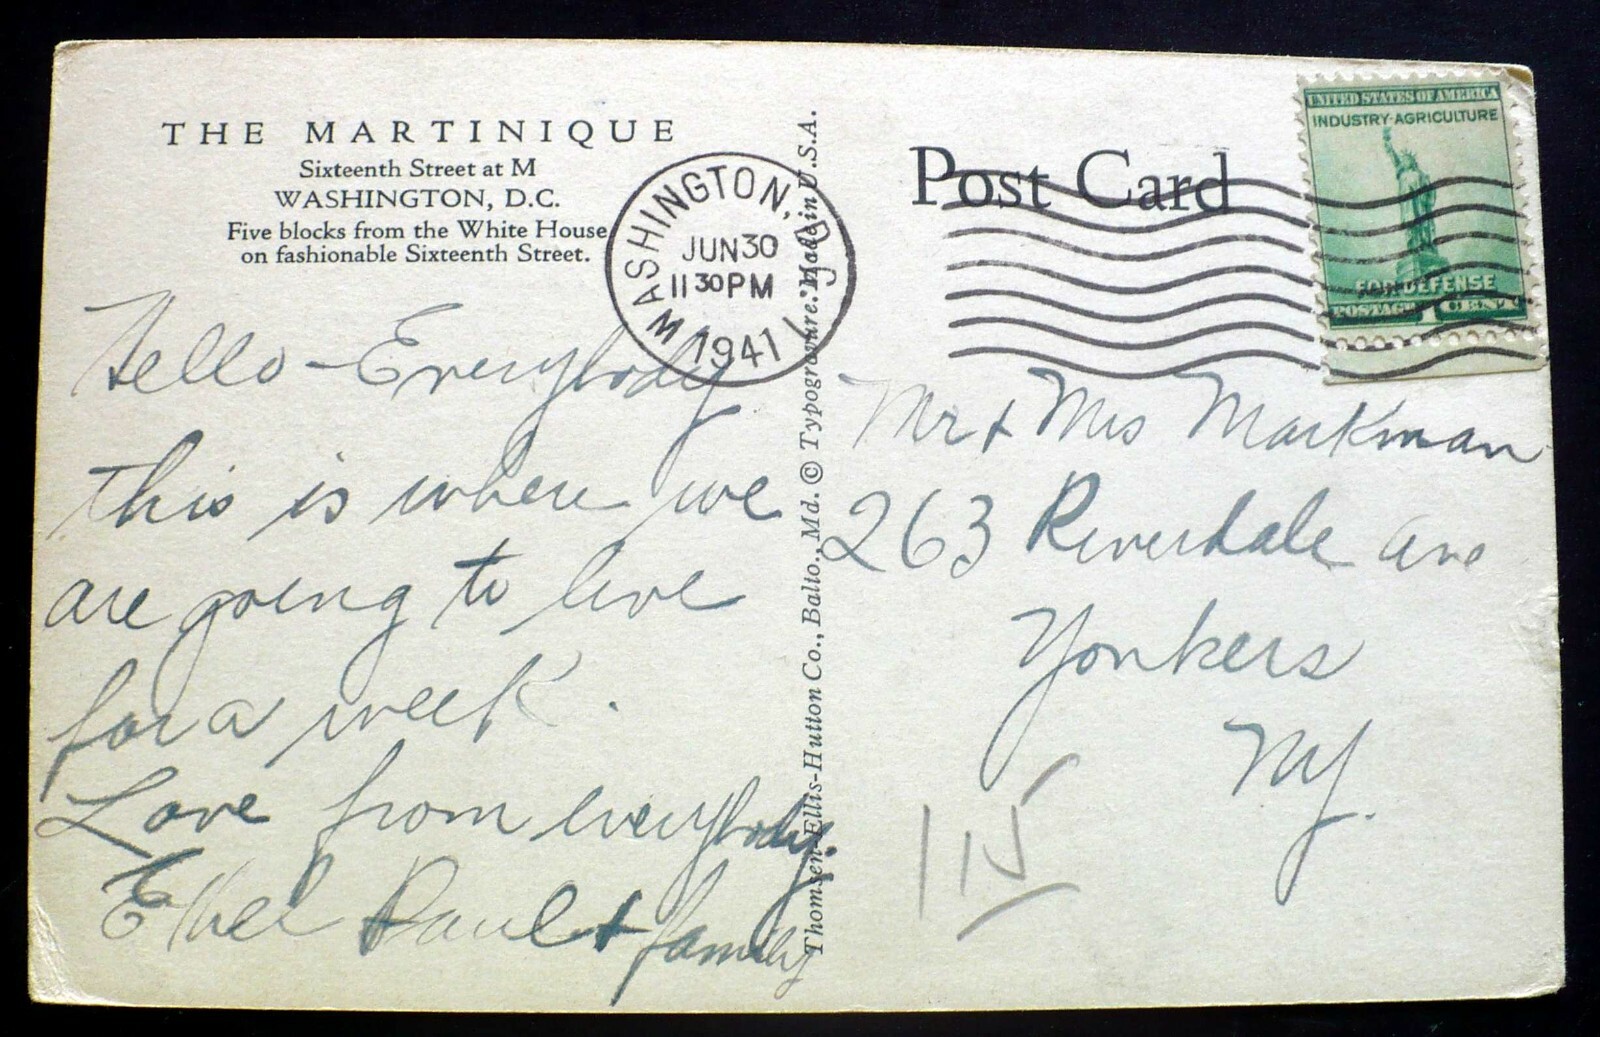 THE MARTINIQUE
Sixteenth Street at M
WASHINGTON, D.C.
Five blocks from the White House
on fashionable Sixteenth Street.
Hello - Everybody
this is where we
are going to live
for a week.
Love from everybody.
Ethel Paul + family
WASHINGTON, D.C.
JUN 30
11 30 PM
1941
1
Thomsen-Ellis-Hutton Co., Balto., Md. © Typogravure. Made in U.S.A.
Post Card
UNITED STATES OF AMERICA
INDUSTRY-AGRICULTURE
FOR DEFENSE
POSTAGE 1 CENT
Mr + Mrs Markman
263 Riverdale Ave
Yonkers
NY.